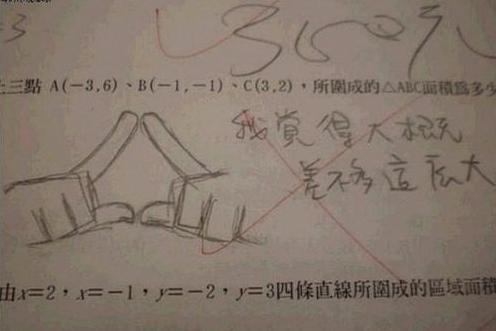 =3
上三點 A(-3,6)、B(-1,-1)、C(3,2)，所圍成的△ABC面積為多少
我覺得大概
差不多這麼大
由x=2，x=-1，y=-2，y=3四條直線所圍成的區域面積